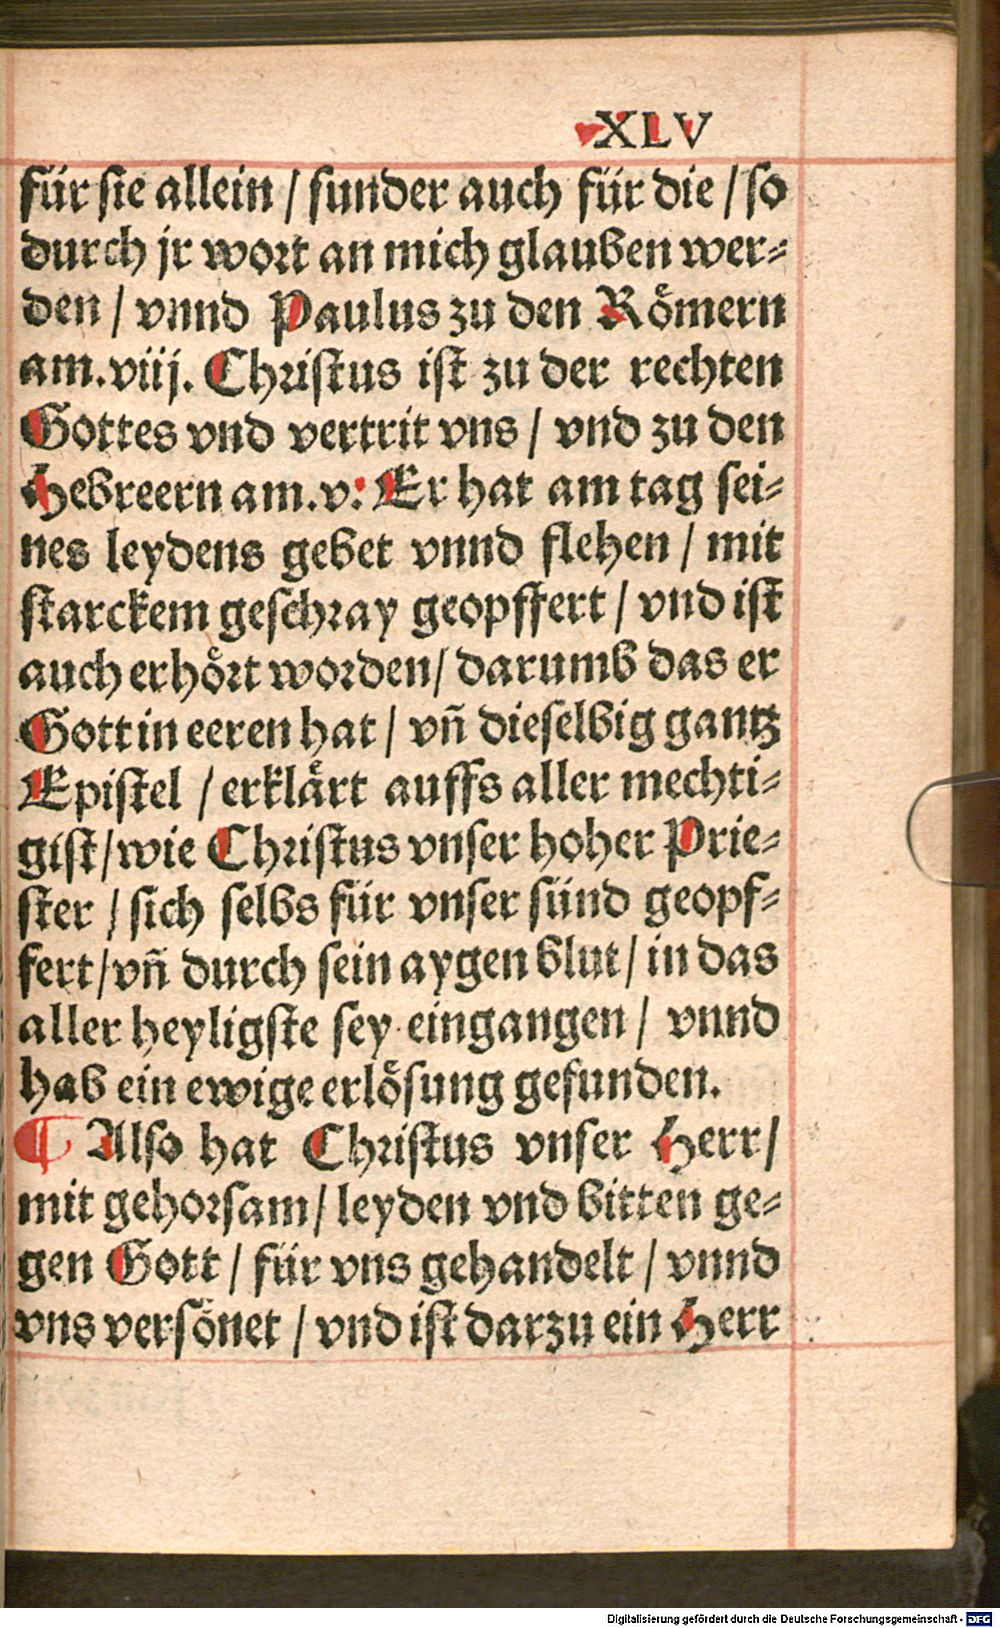 XLV
für sie allein / sunder auch für die / so
durch jr wort an mich glauben wer⸗
den / vnnd Paulus zu den Römern
am.viij. Christus ist zu der rechten
Gottes vnd vertrit vns / vnd zu den
Hebreern am.v: Er hat am tag sei⸗
nes leydens gebet vnnd flehen / mit
starckem geschray geopffert / vnd ist
auch erhört worden / darumb das er
Gott in eeren hat / vñ dieselbig gantz
Epistel / erklärt auffs aller mechti⸗
gist / wie Christus vnser hoher Prie⸗
ster / sich selbs für vnser sünd geopf⸗
fert / vñ durch sein aygen blut / in das
aller heyligste sey eingangen / vnnd
hab ein ewige erlösung gefunden.
¶ Also hat Christus vnser Herr /
mit gehorsam / leyden vnd bitten ge⸗
gen Gott / für vns gehandelt / vnnd
vns versönet / vnd ist darzu ein Herr
Digitalisierung gefördert durch die Deutsche Forschungsgemeinschaft - DFG